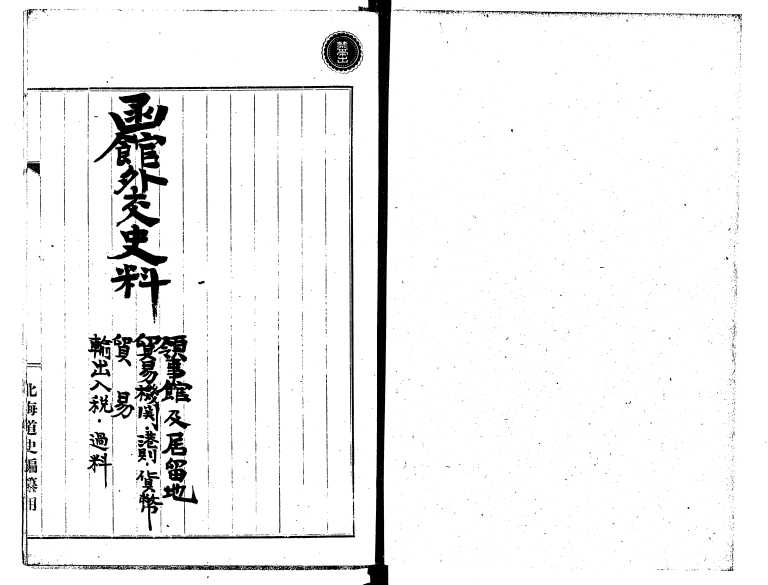 禁帯出
函館外交史料
領事館及居留地
貿易機関・港則・貨幣
貿易
輸出入税・過料
北海道史編纂用